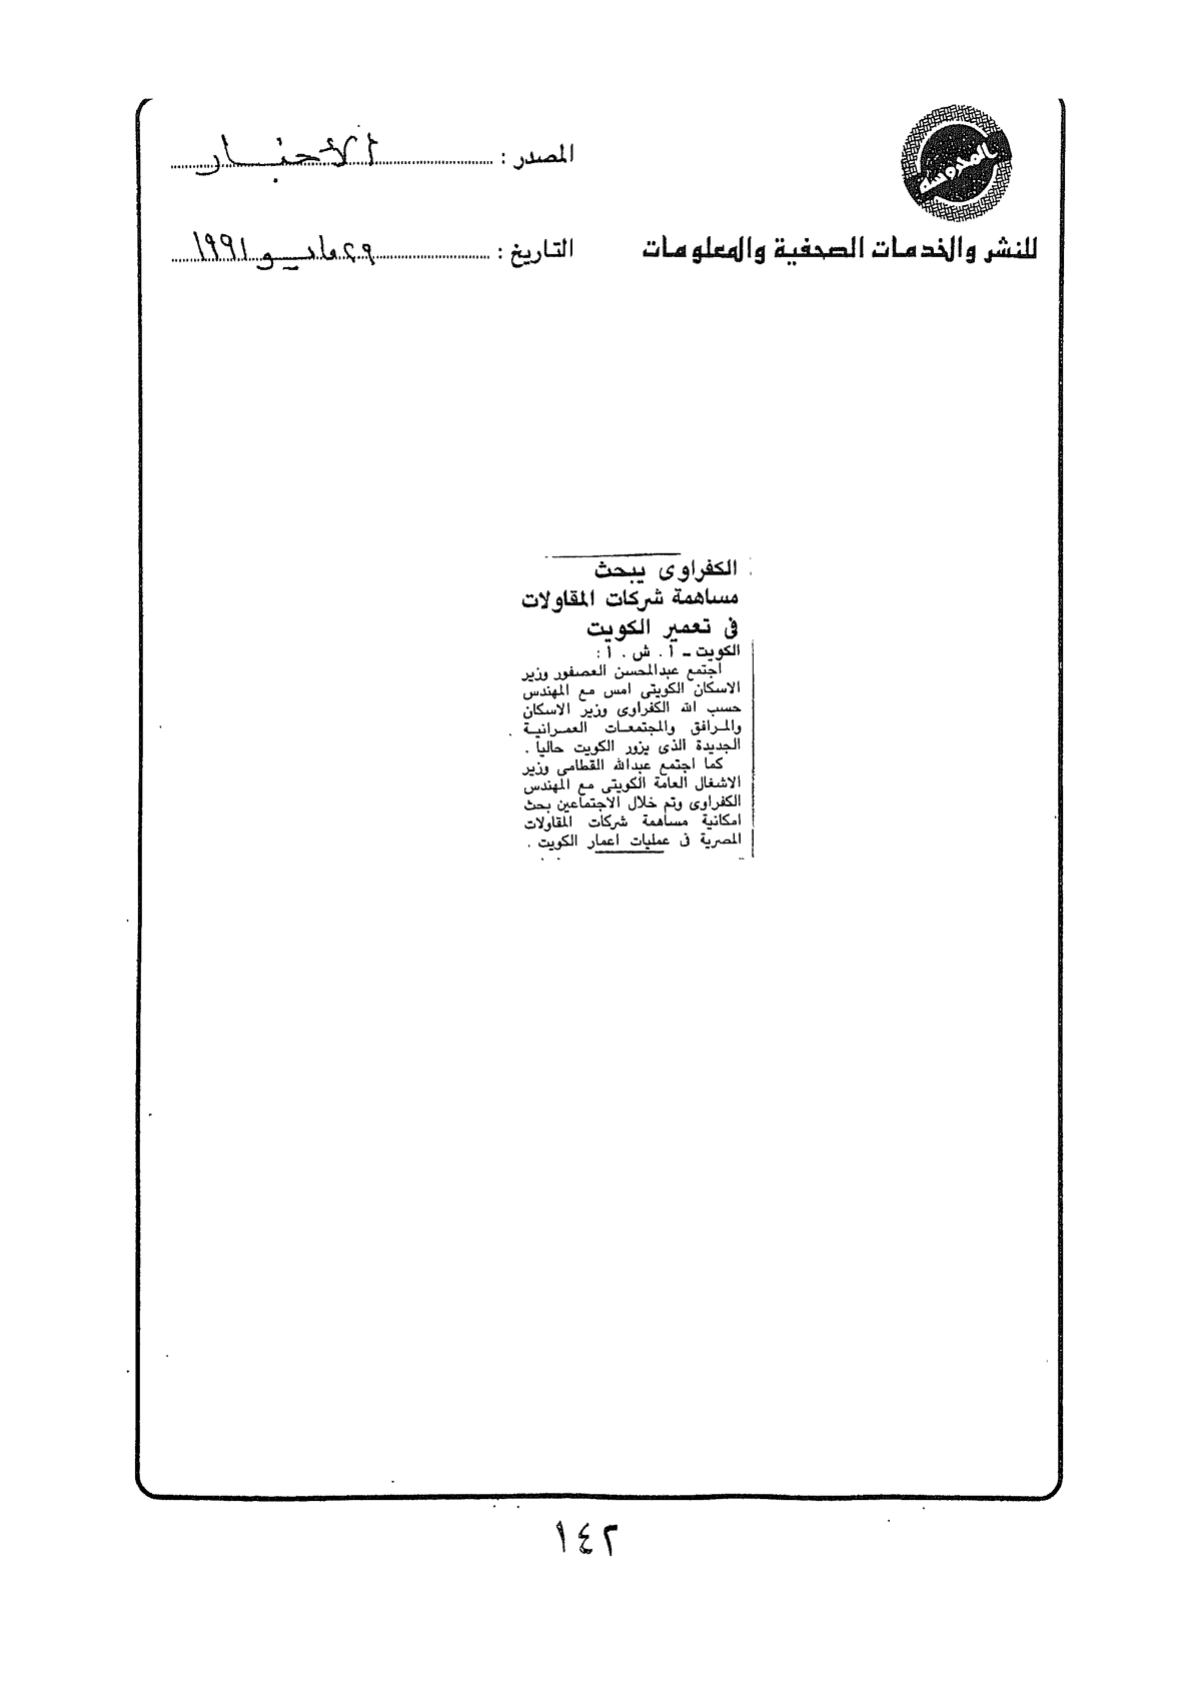 المصدر : الأخبار
المدوسة
للنشر والخدمات الصحفية والمعلومات
التاريخ : ٢٩ مايو ١٩٩١
الكفراوى يبحث
مساهمة شركات المقاولات
فى تعمير الكويت
الكويت ـ أ . ش . أ :
اجتمع عبدالمحسن العصفور وزير
الاسكان الكويتى امس مع المهندس
حسب الله الكفراوى وزير الاسكان
والمرافق والمجتمعات العمرانية
الجديدة الذى يزور الكويت حاليا .
كما اجتمع عبدالله القطامى وزير
الاشغال العامة الكويتى مع المهندس
الكفراوى وتم خلال الاجتماعين بحث
امكانية مساهمة شركات المقاولات
المصرية فى عمليات اعمار الكويت .
١٤٢